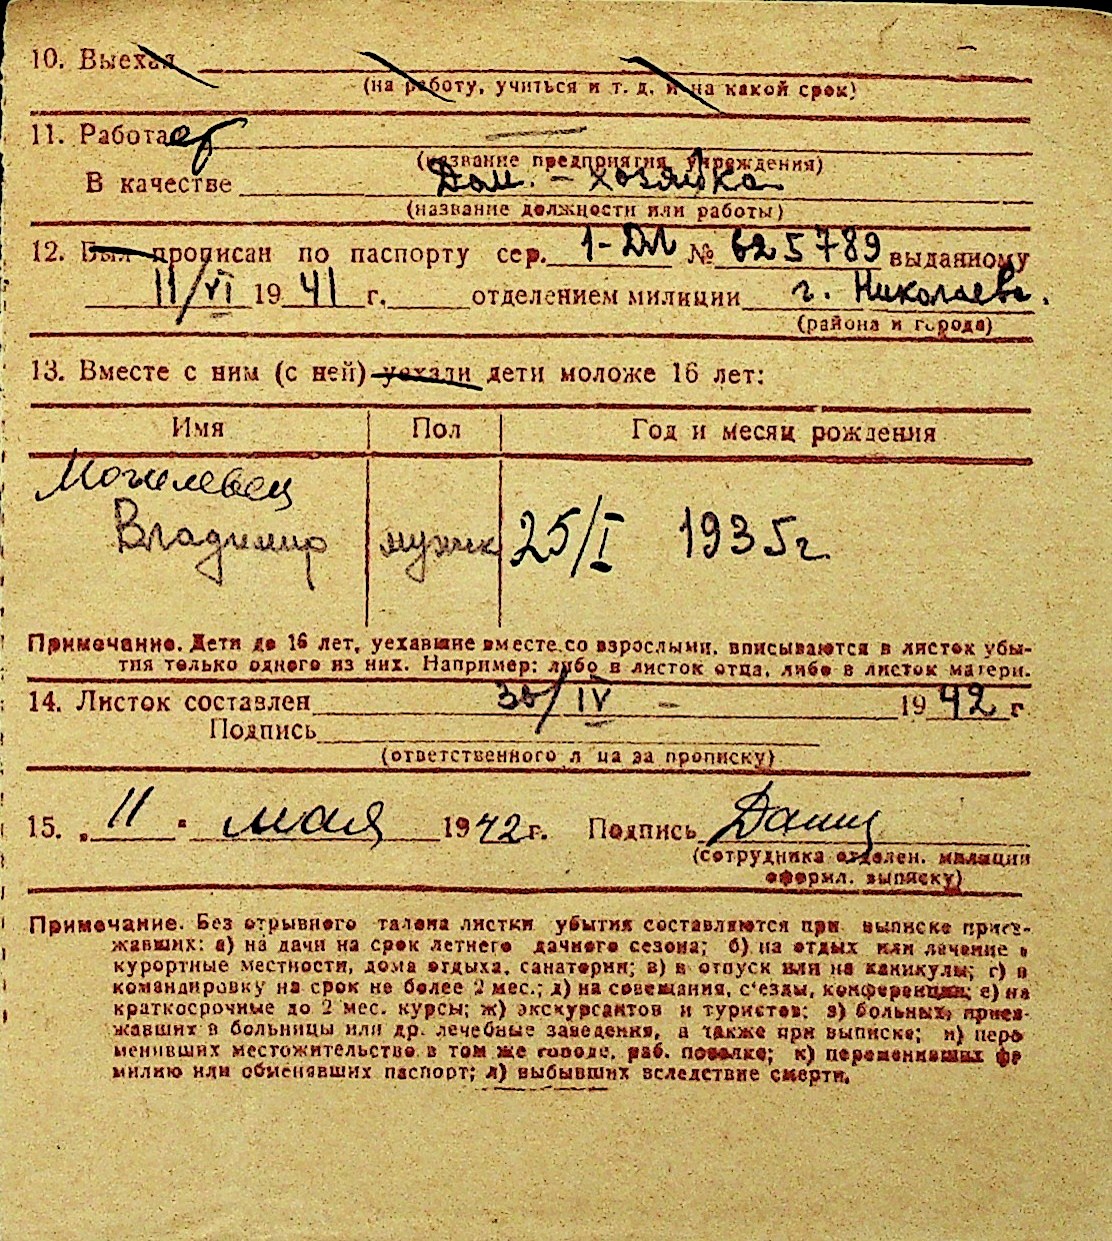 10. Выехал
(на работу, учиться и т. д. и на какой срок)
11. Работает —
(название предприятия, учреждения)
В качестве Дом. - хозяйка
(название должности или работы)
12. Был прописан по паспорту сер. 1-ДЛ № 625789 выданному
11/VI 1941 г. отделением милиции г. Николаева.
(района и города)
13. Вместе с ним (с ней) уехали дети моложе 16 лет:
Имя Пол Год и месяц рождения
Могилевец
Владимир мужск 25/I 1935 г.
Примечание. Дети до 16 лет, уехавшие вместе со взрослыми, вписываются в листок убы-
тия только одного из них. Например: либо в листок отца, либо в листок матери.
14. Листок составлен 30/IV - 1942 г
Подпись
(ответственного лица за прописку)
15. „ 11 " мая 1942 г. Подпись
(сотрудника отделен. милиции
оформл. выписку)
Примечание. Без отрывного талона листки убытия составляются при выписке приез-
жавших: а) на дачи на срок летнего дачного сезона; б) на отдых или лечение в
курортные местности, дома отдыха, санатории; в) в отпуск или на каникулы; г) в
командировку на срок не более 2 мес.; д) на совещания, с'езды, конференции; е) на
краткосрочные до 2 мес. курсы; ж) экскурсантов и туристов; з) больных, приез-
жавших в больницы или др. лечебные заведения, а также при выписке; и) пере
менивших местожительство в том же городе, раб. поселке; к) переменивших фа
милию или обменявших паспорт; л) выбывших вследствие смерти.